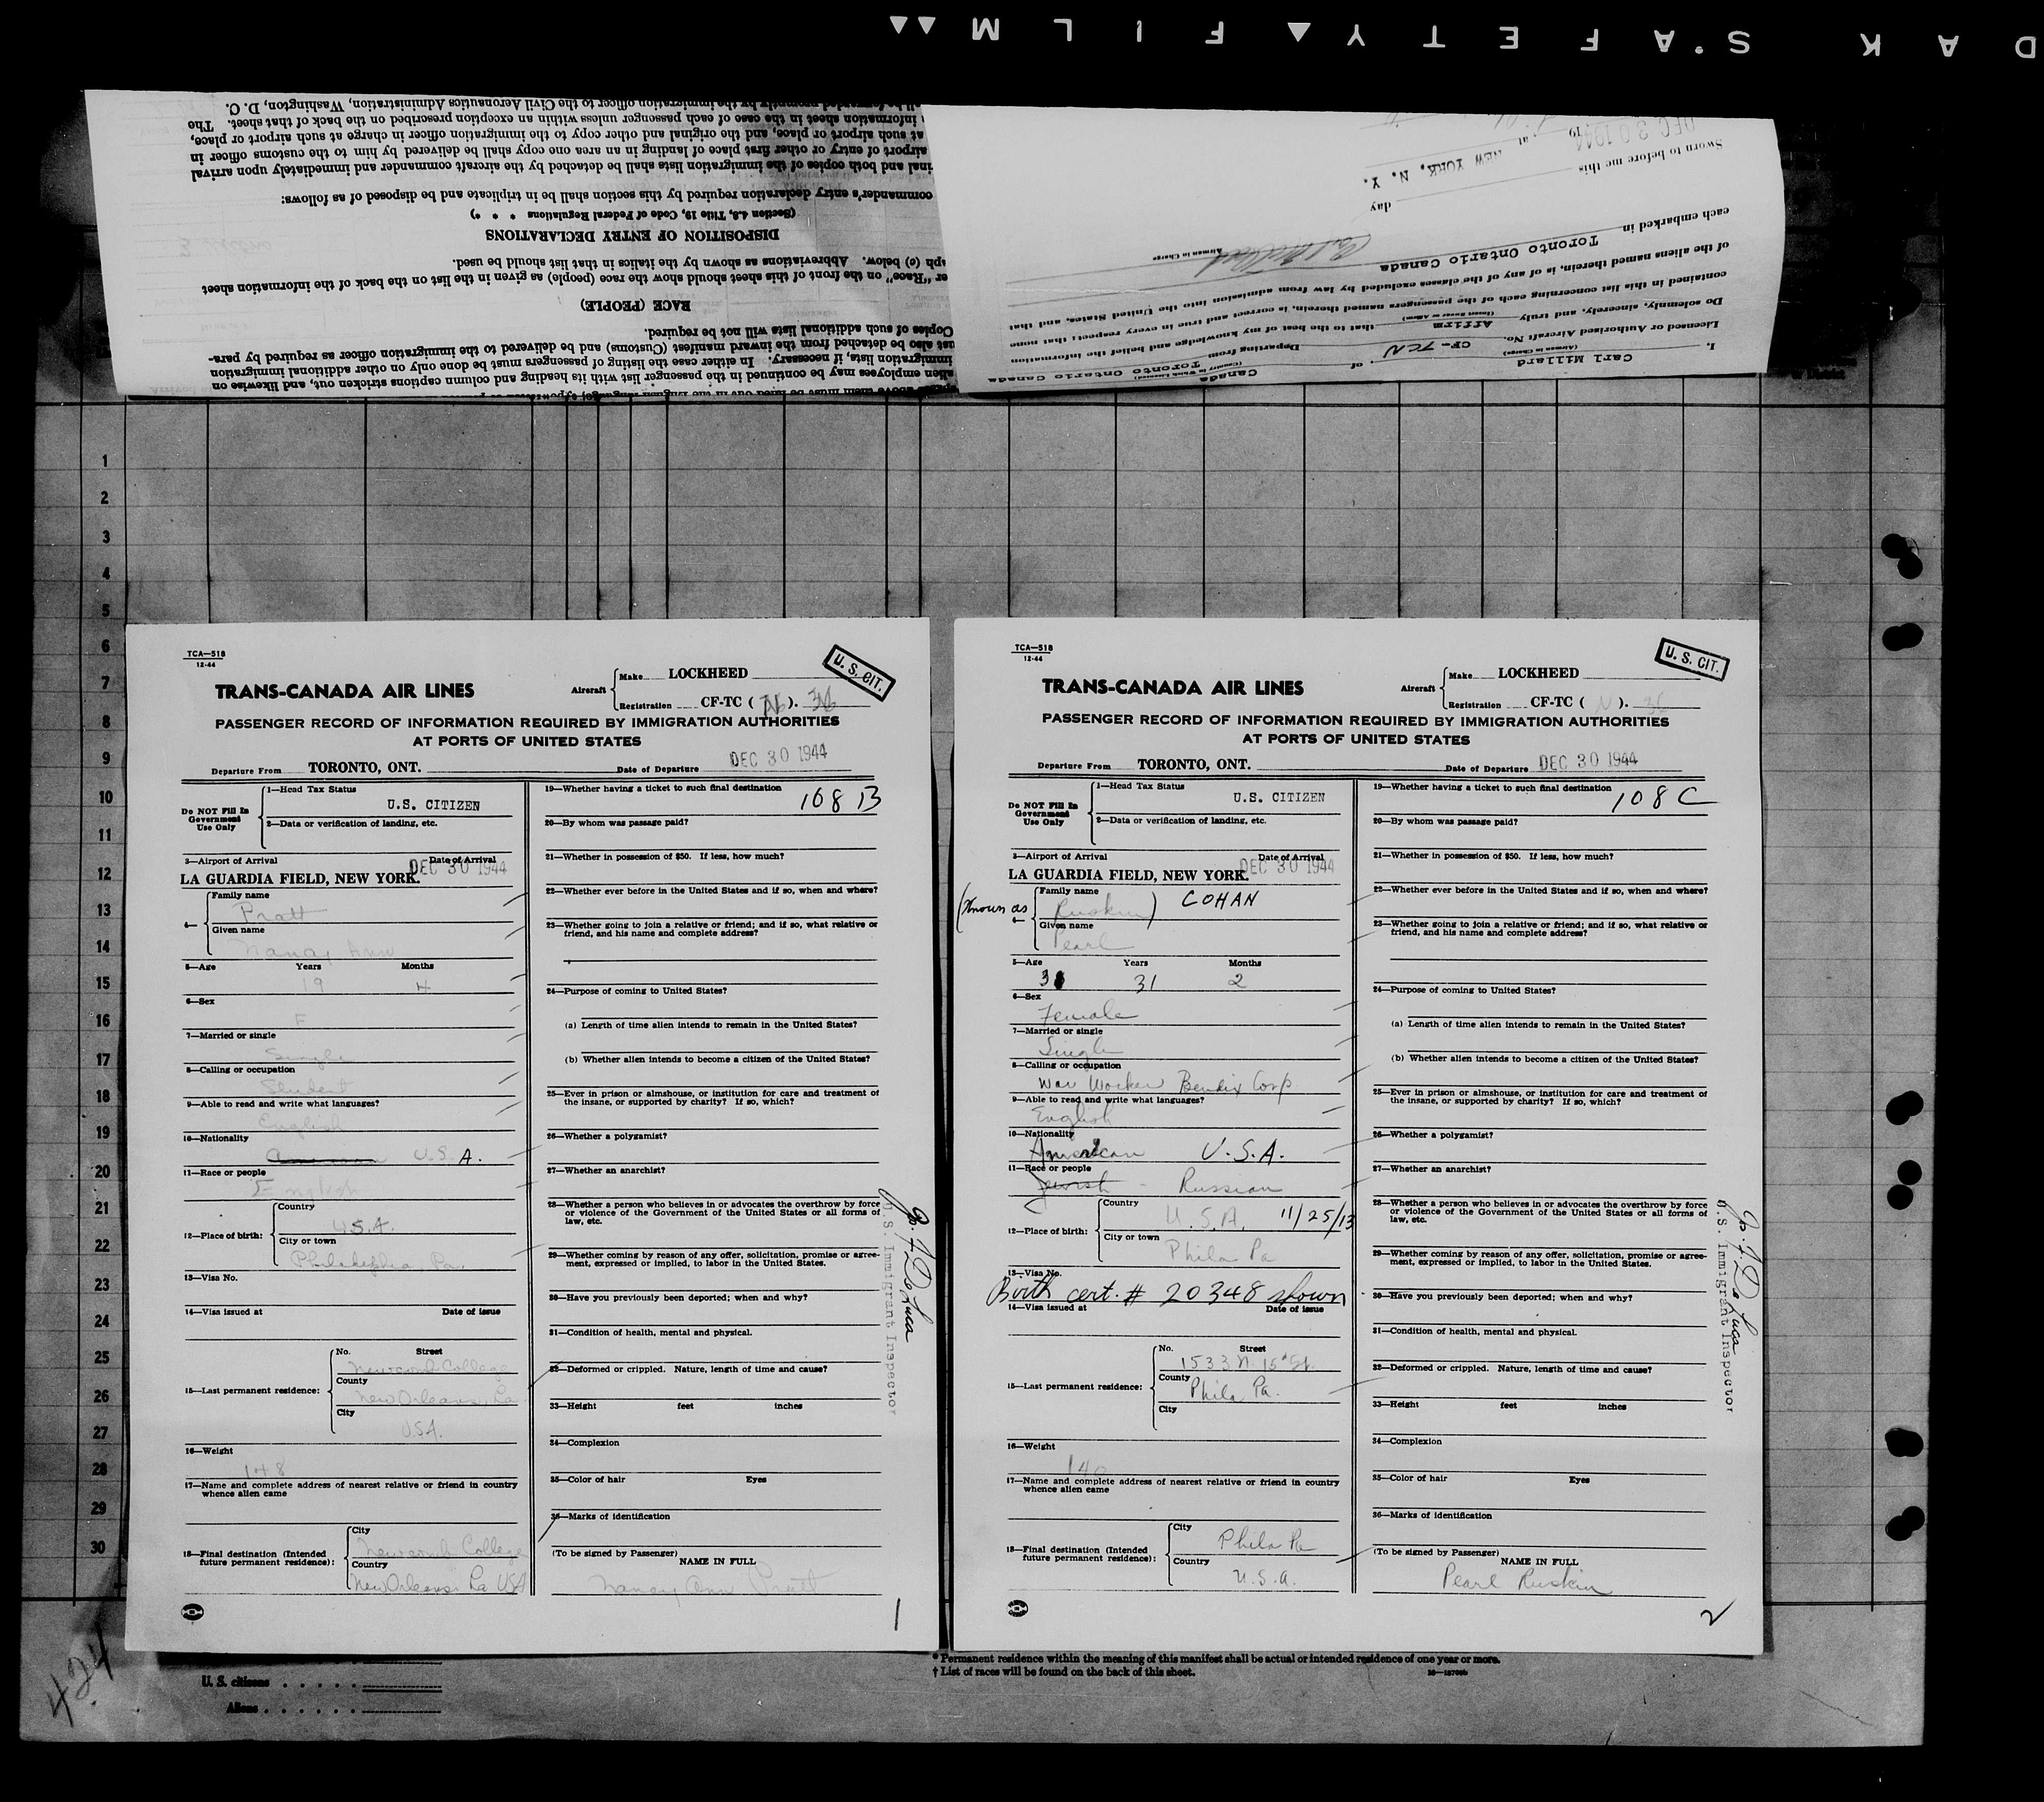 DAK S·AFETY▲FILM▲▲
be forwarded promptly by the immigration officer to the Civil Aeronautics Administration, Washington, D. C.
information sheet in the case of each passenger unless within an exception prescribed on the back of that sheet. The
at such airport or place, and the original and other copy to the immigration officer in charge at such airport or place,
airport of entry or other first place of landing in an area one copy shall be delivered by him to the customs officer in
inal and both copies of the immigration lists shall be detached by the aircraft commander and immediately upon arrival
commander's entry declaration required by this section shall be in triplicate and be disposed of as follows:
(Section 4.8, Title 19, Code of Federal Regulations * * *)
DISPOSITION OF ENTRY DECLARATIONS
aph (e) below. Abbreviations as shown by the italics in that list should be used.
er "Race" on the front of this sheet should show the race (people) as given in the list on the back of the information sheet
RACE (PEOPLE)
Copies of such additional lists will not be required.
ust also be detached from the inward manifest (Customs) and be delivered to the immigration officer as required by para-
immigration lists, if necessary. In either case the listing of passengers must be done only on other additional immigration
alien employees may be continued in the passenger list with its heading and column captions stricken out, and likewise on
I, Carl Millard of Canada
(Airman in Charge) (Country in Which Licensed)
Licensed or Authorized Aircraft No. CF-TCN Departing from Toronto Ontario Canada
Do solemnly, sincerely, and truly Affirm that to the best of my knowledge and belief the information
(Insert Swear or Affirm)
contained in this list concerning each of the passengers named therein, is correct and true in every respect; that none
of the aliens named therein, is of any of the classes excluded by law from admission into the United States, and that
each embarked in Toronto Ontario Canada
Airman in Charge
Sworn to before me this day
DEC 30 1944 19 at NEW YORK, N. Y.
1
2
3
4
5
6
7
8
9
10
11
12
13
14
15
16
17
18
19
20
21
22
23
24
25
26
27
28
29
30
TCA—518
12-44
U. S. CIT.
TRANS-CANADA AIR LINES
Aircraft Make LOCKHEED
Registration CF-TC ( N ). 36
PASSENGER RECORD OF INFORMATION REQUIRED BY IMMIGRATION AUTHORITIES
AT PORTS OF UNITED STATES
Departure From TORONTO, ONT. Date of Departure DEC 30 1944
Do NOT Fill In Government Use Only
1—Head Tax Status
U.S. CITIZEN
2—Data or verification of landing, etc.
3—Airport of Arrival Date of Arrival
LA GUARDIA FIELD, NEW YORK. DEC 30 1944
4— Family name
Pratt
Given name
Nancy Ann
5—Age Years Months
19 4
6—Sex
F
7—Married or single
Single
8—Calling or occupation
Student
9—Able to read and write what languages?
English
10—Nationality
American U.S.A.
11—Race or people
English
12—Place of birth: Country
U.S.A.
City or town
Philadelphia, Pa.
13—Visa No.
14—Visa issued at Date of issue
15—Last permanent residence: No. Street
Newcomb College
County
New Orleans, La
City
USA.
16—Weight
148
17—Name and complete address of nearest relative or friend in country
whence alien came
18—Final destination (Intended
future permanent residence): City
Newcomb College
Country
New Orleans La USA
19—Whether having a ticket to such final destination
108 B
20—By whom was passage paid?
21—Whether in possession of $50. If less, how much?
22—Whether ever before in the United States and if so, when and where?
23—Whether going to join a relative or friend; and if so, what relative or
friend, and his name and complete address?
24—Purpose of coming to United States?
(a) Length of time alien intends to remain in the United States?
(b) Whether alien intends to become a citizen of the United States?
25—Ever in prison or almshouse, or institution for care and treatment of
the insane, or supported by charity? If so, which?
26—Whether a polygamist?
27—Whether an anarchist?
28—Whether a person who believes in or advocates the overthrow by force
or violence of the Government of the United States or all forms of
law, etc.
29—Whether coming by reason of any offer, solicitation, promise or agree-
ment, expressed or implied, to labor in the United States.
30—Have you previously been deported; when and why?
31—Condition of health, mental and physical.
32—Deformed or crippled. Nature, length of time and cause?
33—Height feet inches
34—Complexion
35—Color of hair Eyes
36—Marks of identification
(To be signed by Passenger) NAME IN FULL
Nancy Ann Pratt
1
Jo. J. DeLuca
U.S. Immigrant Inspector
TCA—518
12-44
U. S. CIT.
TRANS-CANADA AIR LINES
Aircraft Make LOCKHEED
Registration CF-TC ( N ). 36
PASSENGER RECORD OF INFORMATION REQUIRED BY IMMIGRATION AUTHORITIES
AT PORTS OF UNITED STATES
Departure From TORONTO, ONT. Date of Departure DEC 30 1944
Do NOT Fill In Government Use Only
1—Head Tax Status
U.S. CITIZEN
2—Data or verification of landing, etc.
3—Airport of Arrival Date of Arrival
LA GUARDIA FIELD, NEW YORK. DEC 30 1944
4— Family name
(Known as Ruskin) COHAN
Given name
Pearl
5—Age Years Months
31 2
6—Sex
Female
7—Married or single
Single
8—Calling or occupation
War Worker Bendix Corp
9—Able to read and write what languages?
English
10—Nationality
American U.S.A.
11—Race or people
Jewish - Russian
12—Place of birth: Country
U.S.A. 11/25/13
City or town
Phila Pa
13—Visa No.
Birth cert. # 20348 shown
14—Visa issued at Date of issue
15—Last permanent residence: No. Street
1533 N. 15th St.
County
Phila Pa.
City
16—Weight
140
17—Name and complete address of nearest relative or friend in country
whence alien came
18—Final destination (Intended
future permanent residence): City
Phila Pa
Country
U.S.A.
19—Whether having a ticket to such final destination
108 C
20—By whom was passage paid?
21—Whether in possession of $50. If less, how much?
22—Whether ever before in the United States and if so, when and where?
23—Whether going to join a relative or friend; and if so, what relative or
friend, and his name and complete address?
24—Purpose of coming to United States?
(a) Length of time alien intends to remain in the United States?
(b) Whether alien intends to become a citizen of the United States?
25—Ever in prison or almshouse, or institution for care and treatment of
the insane, or supported by charity? If so, which?
26—Whether a polygamist?
27—Whether an anarchist?
28—Whether a person who believes in or advocates the overthrow by force
or violence of the Government of the United States or all forms of
law, etc.
29—Whether coming by reason of any offer, solicitation, promise or agree-
ment, expressed or implied, to labor in the United States.
30—Have you previously been deported; when and why?
31—Condition of health, mental and physical.
32—Deformed or crippled. Nature, length of time and cause?
33—Height feet inches
34—Complexion
35—Color of hair Eyes
36—Marks of identification
(To be signed by Passenger) NAME IN FULL
Pearl Ruskin
2
Jo. J. DeLuca
U.S. Immigrant Inspector
424
U. S. citizens
Aliens
* Permanent residence within the meaning of this manifest shall be actual or intended residence of one year or more.
† List of races will be found on the back of this sheet.